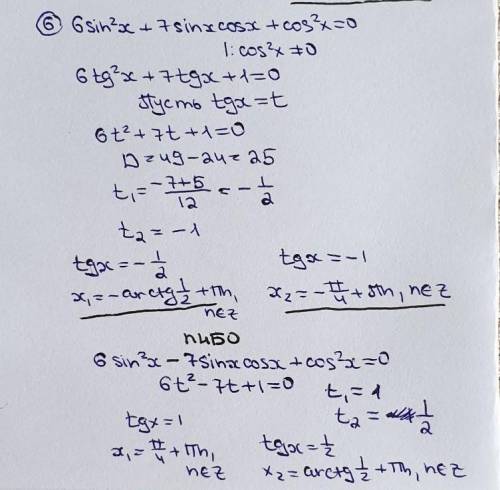 ⑥ 6sin²x + 7sinxcosx + cos²x = 0
|: cos²x ≠ 0
6tg²x + 7tgx + 1 = 0
Пусть tgx = t
6t² + 7t + 1 = 0
D = 49 - 24 = 25
t₁ = (-7+5)/12 = -1/2
t₂ = -1
tgx = -1/2 tgx = -1
x₁ = -arctg 1/2 + πn, n∈z x₂ = -π/4 + πn, n∈z
либо
6sin²x - 7sinxcosx + cos²x = 0
6t² - 7t + 1 = 0 t₁ = 1
t₂ = 1/2
tgx = 1 tgx = 1/2
x₁ = π/4 + πn, n∈z x₂ = arctg 1/2 + πn, n∈z